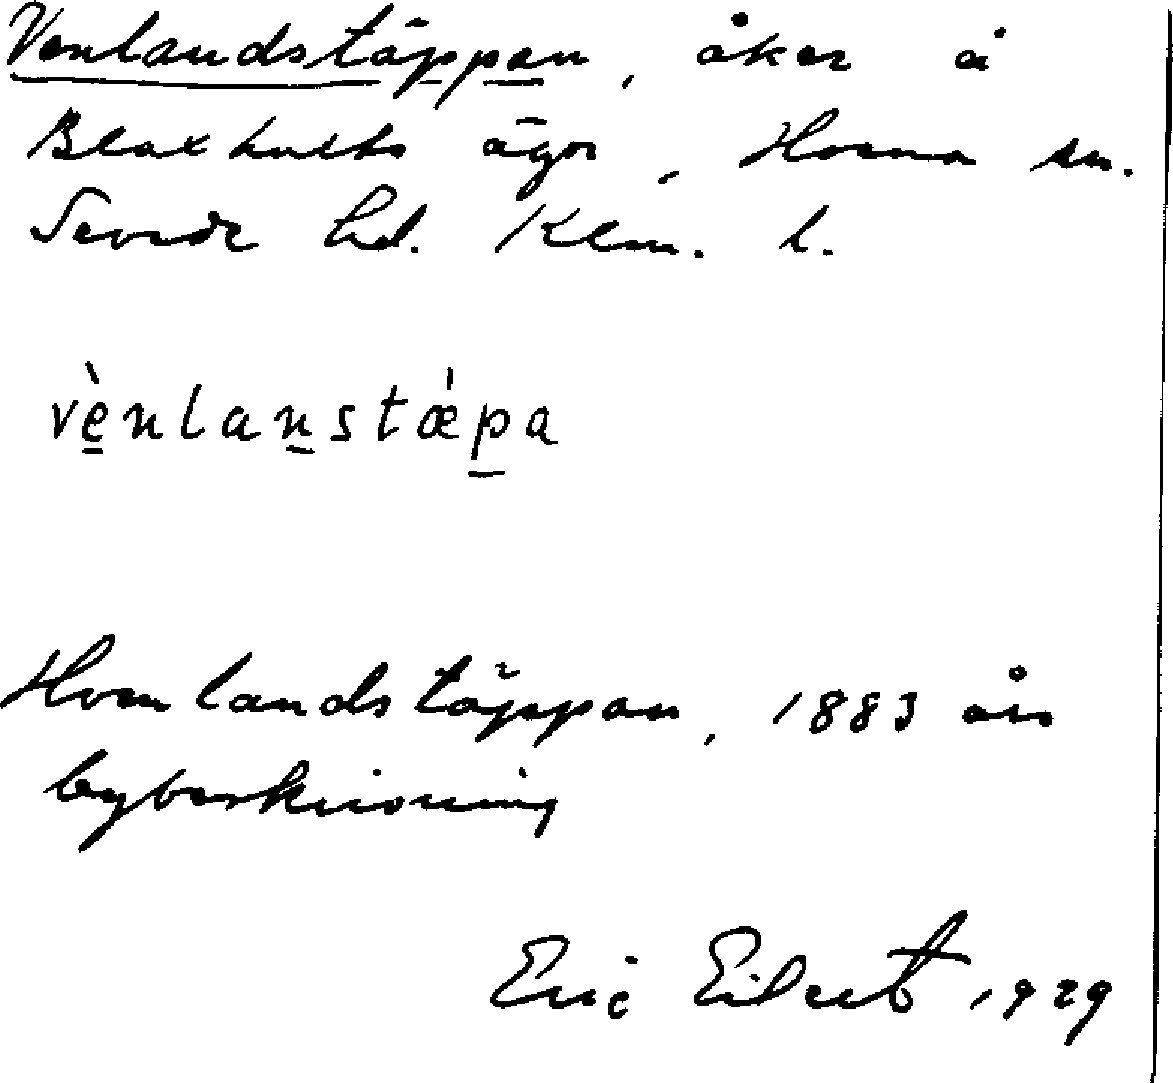 Venlandstäppan, åker å
Blaxhults ägor, Horna sn.
Sevede hd. Klm. l.
vè̱nlaṉstǽp̱a
Hvenlandstäppan, 1883 års
bybeskrivning
Eric Eilert 1929